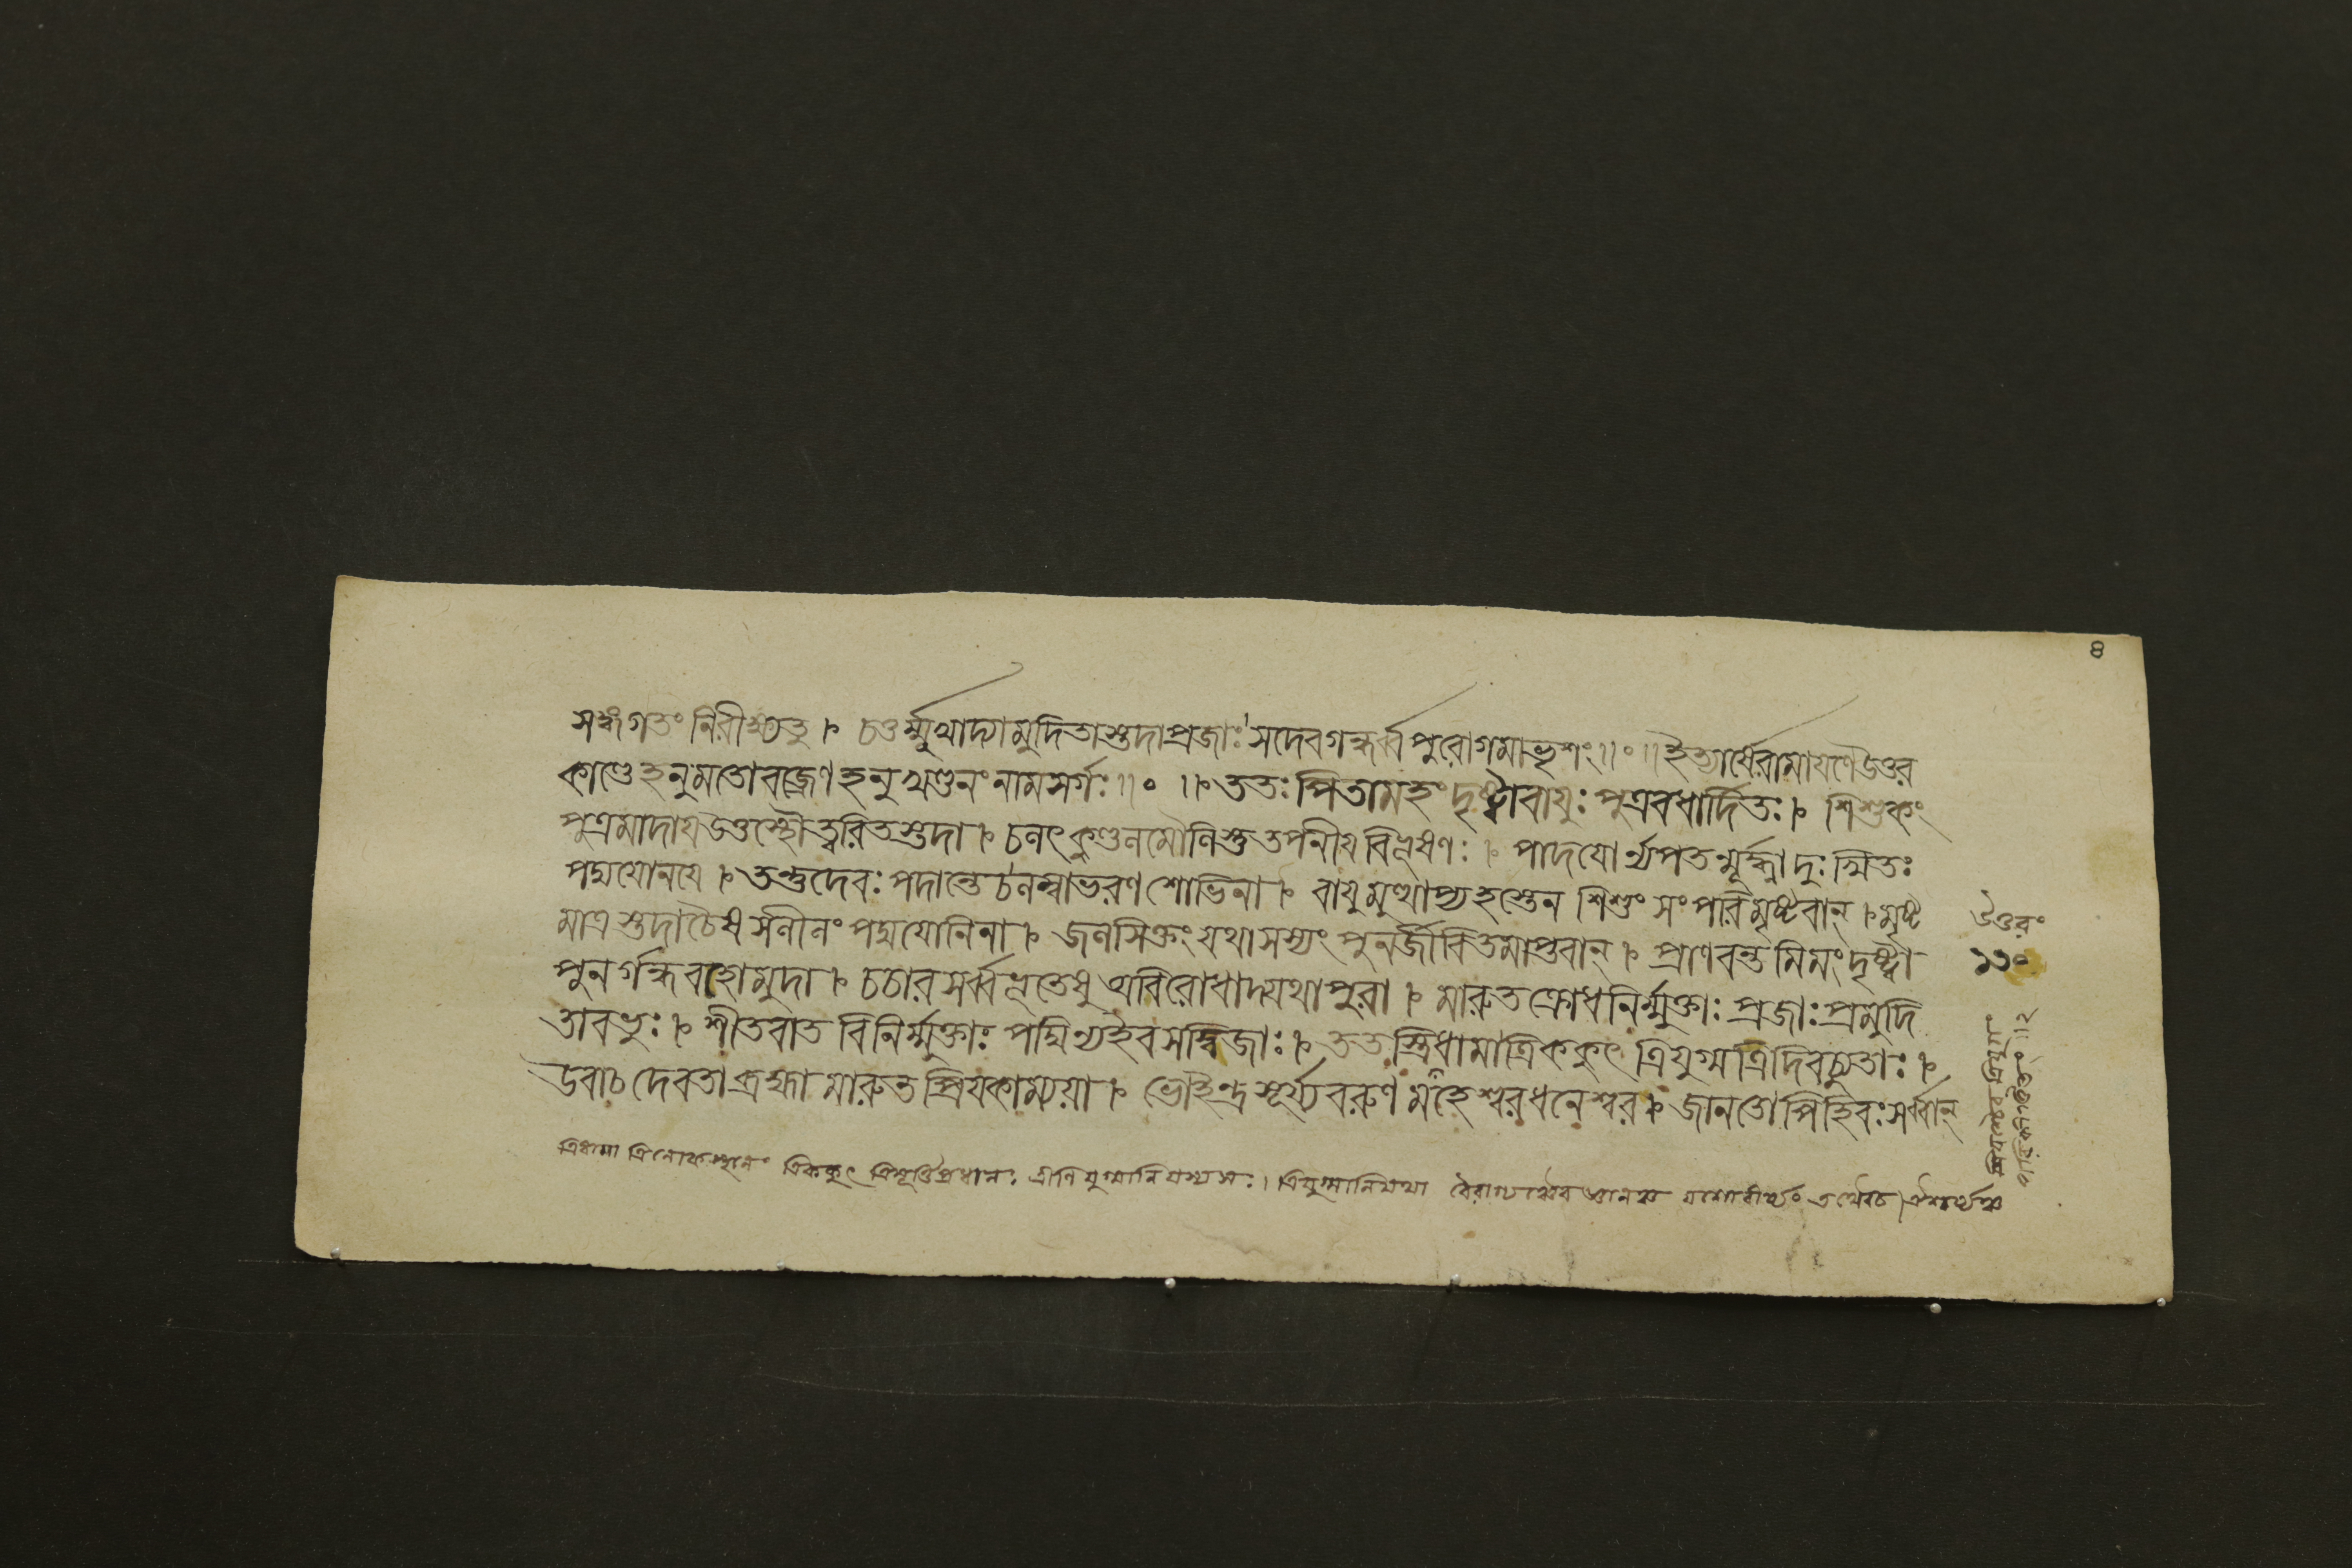 ৪
সঙ্গংগতং নিরীক্ষ্যতু ৷ চতুর্ম্মুখাদ্যামুদিতাস্তদাপ্রজাঃ সদেবগন্ধর্ব্বপুরোগমাভৃশং॥০॥ইত্যার্ষেরামাযণেউত্তর
কাণ্ডে হনুমতোবজ্রেণ হনুখণ্ডনং নামসর্গঃ॥০॥৷ ততঃ পিতামহং দৃষ্ট্বাবাযুঃ পুত্রবধার্দিতঃ ৷ শিশুকং
পুত্রমাদায উত্তস্থৌত্বরিতস্তদা ৷ চলৎকুণ্ডলমৌলিস্তু তপনীযবিভূষণঃ ৷ পাদযোর্ন্যপতন্মূর্দ্ধ্না দুঃখিতঃ
পদ্মযোনযে ৷ তন্তুদেবঃ পদান্তেচলম্বাভরণ শোভিনা ৷ বাযুমুত্থাপ্যহস্তেন শিশুং সংপরিমৃষ্টবান্ ৷ মৃষ্ট
মাত্রস্তদাচৈষ সলীলং পদ্মযোনিনা ৷ জলসিক্তং যথাসস্যং পুনর্জীবিতমাপ্তবান্ ৷ প্রাণবন্তমিমং দৃষ্ট্বা
পুনর্গন্ধবহোমুদা ৷ চচার সর্ব্বভূতেষু অবিরোধাদ্যথাপুরা ৷ মারুতক্রোধনির্ম্মুক্তাঃ প্রজাঃ প্রমুদি
তাবভুঃ ৷ শীতবাত বিনির্ম্মুক্তাঃ পদ্মিণ্যইবসদ্বিজাঃ ৷ ততস্ত্রিধামাত্রিককুৎ ত্রিযুগ্মত্রিদিবচ্যুতাঃ ৷
উবাচ দেবতাব্রহ্মা মারুত প্রিযকাম্যয়া ৷ ভোইন্দ্রসূর্য্যবরুণ মহেশ্বরধনেশ্বর ৷ জানতোপিহিবঃ সর্ব্বান্
ত্রিধামা ত্রিলোকস্থানং ত্রিককুৎ ত্রিমূর্ত্তিপ্রধানঃ ত্রীণিযুগ্মানিযস্যসঃ। ত্রিযুগ্মানিযথা বৈরাগ্য যশোবীর্য্যং ঐশ্বর্য্যঞ্চ
উত্তরং
১১০